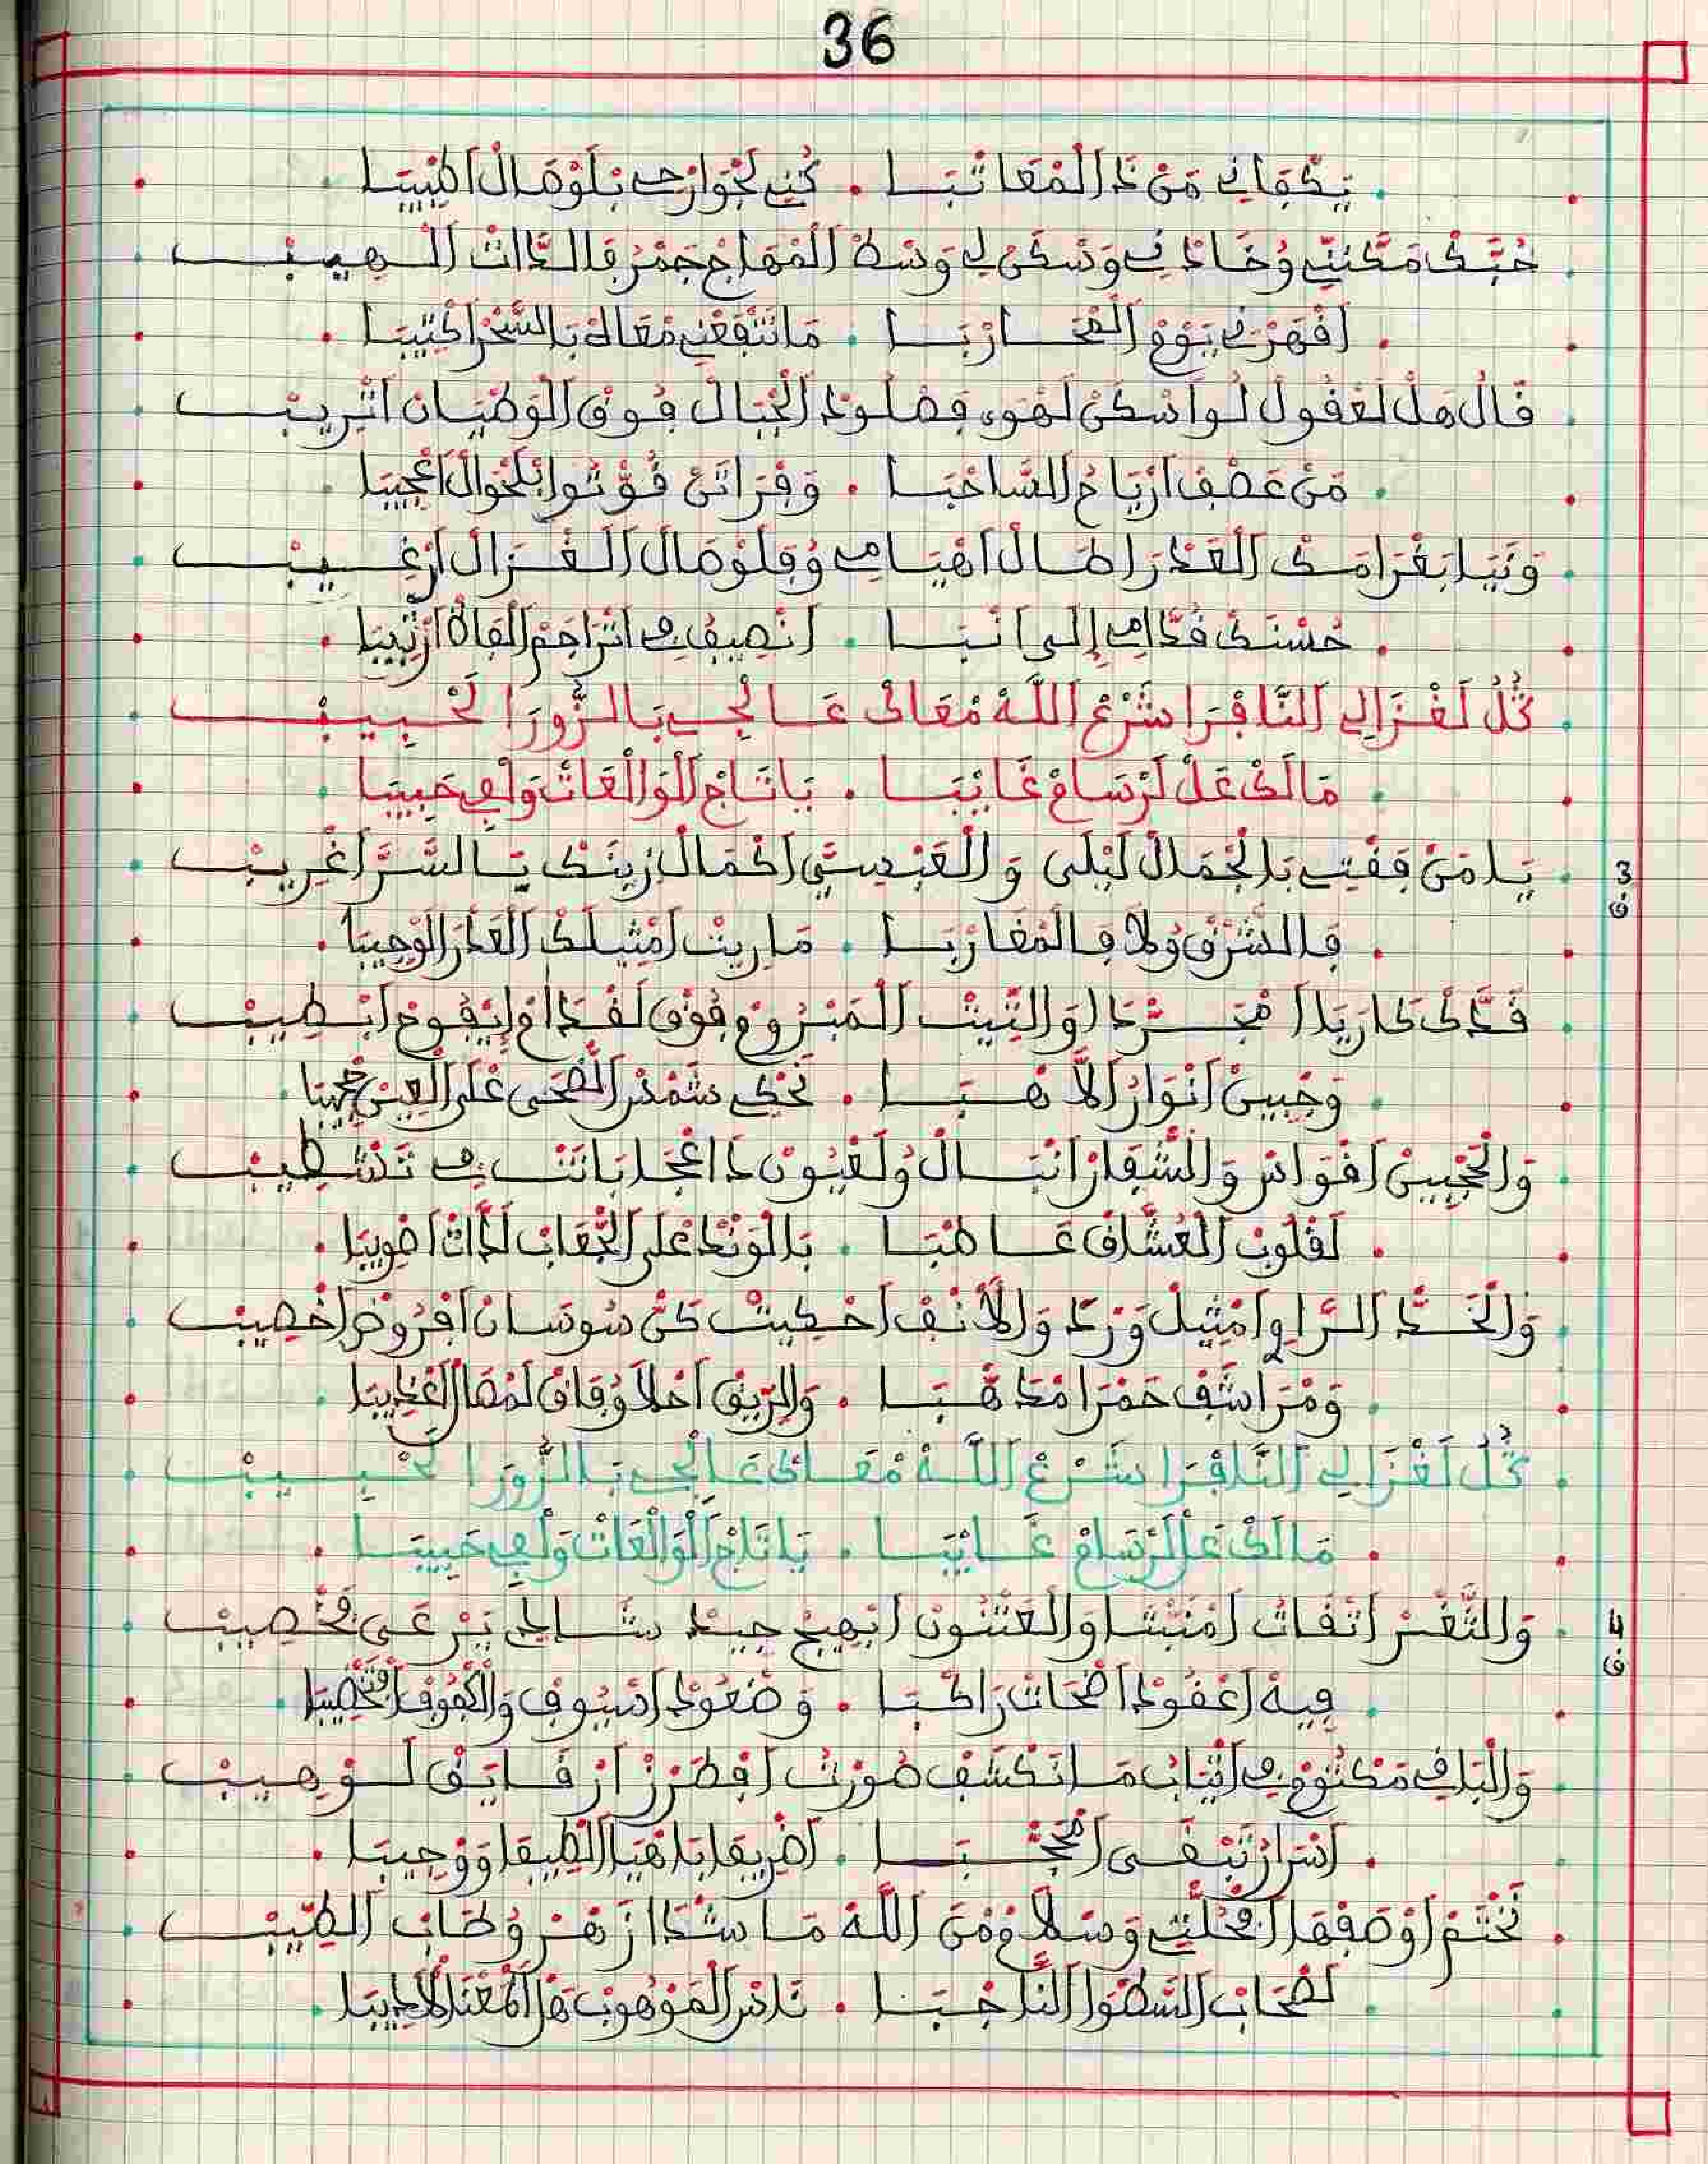 36
يَكْفَانِي مَنْ ذَ الْمْعَاتْبَا . كُنِّي لَجْوَارْحِي بَلْوْصَالْ اطْبِيبَا
حُبَّكْ مَكَّنِّي وُخَادْنِي وَسْكَنْ لِي وَسْطْ الْمْهَاجْ جَمْرْ فَالدَّاتْ الْهِيبْ
اقْهَرْنِي يَوْمْ الْمْحَارْبَا . مَا نَفْعَتْنِي مْعَاكْ بَالسَّحْرْ اكْتِيبَا
قَالْ هَلْ لَعْقُولْ لُو اسْكَنْ لَهْوَى فَصْلُودْ الْجْبَالْ فُوقْ الْوَطْيَانْ اتْرِيبْ
مَنْ عَصْفْ ارْيَاحْ السَّاحْبَا . وَفْرَاتَنْ فُوتُو بْلَحْوَالْ اعْجِيبَا
وَنَيَا بَغْرَامَكْ الْعَدْرَا طَالْ اهْيَامِي وُفَلْوْصَالْ الْغْزَالْ ارْغِيبْ
حُسْنَكْ قُدَّامِي إِلَى انْبَا . انْصِيفُه فِي اتْرَاجَمْ الْقَاهْ ارْتِيبَا
كُلْ لَغْزَالِي النَّافْرَا شَرْعْ اللَّهْ مْعَاكْ عَالْجِي بَالزُّورَا لَحْبِيبْ
مَالَكْ عَلْ لَرْسَامْ غَايْبَا . يَا تَاجْ الْوَالْعَاتْ وَلْفِي حَبِيبَا
3 ق
يَا مَنْ فَقْتِي بَالْجْمَالْ لَيْلَى وَالْعَبْسِيَّ اكْمَالْ زِينَكْ يَا السَّرْ اغْرِيبْ
فَالشَّرْقْ وُلَا فَالْمْغَارْبَا . مَا رِيتْ امْثِيلَكْ الْعَدْرَ الْوْجِيبَا
قَدَّكْ كَارَيَا امْجَرّْدَا وَالتِّيتْ الْمَبْرُومْ فُوقْ لَقْدَامْ إِيْفُوحْ ابْطِيبْ
وَجْبِينْ انْوَارُ الَاهْبَا . تَحْكِي شَمْسْ الضّْحَى عْلَى الْعِينْ حْجِيبَا
وَالْحَجْبِينْ اقْوَاسْ وَالشّْفَارْ انْبَالْ وُلَعْيُونْ دَاعْجَا بَاتَتْ فِي تَنْشْطِيبْ
لَقْلُوبْ الْعُشَّاقْ عَاطْبَا . بَالْوَنْدْ عْلَى الْجْعَابْ لَدَّاتْ اصْوِيبَا
وَالْخَدّْ الرَّاوِي امْثِيلْ وَرْدْ وَالْأَنْفْ احْكِيتْ كَنْ سُوسَانْ افْرُوضْ اخْصِيبْ
وَمْرَاشَفْ حَمْرَا مْدَهْبَا . وَالرِّيقْ احْلَا وُفَاقْ لَمْصَالْ الْعْدِيبَا
كُلْ لَغْزَالِي النَّافْرَا شَرْعْ اللَّهْ مْعَاكْ عَالْجِي بَالزُّورَا لَحْبِيبْ
مَالَكْ عَلْ لَرْسَامْ غَايْبَا . يَا تَاجْ الْوَالْعَاتْ وَلْفِي حَبِيبَا
4 ق
وَالثَّغْرْ اتْقَاتْ امْنَبْتَا وَالْعَتْنُونْ ابْهِيجْ جِيدْ شَادِي يَرْعَى فَخْصِيبْ
فِيهْ اعْقُودْ اضْحَاتْ رَاكْبَا . وَضْعُودْ اسْيُوفْ وَالْكْفُوفْ اتْخْضِيبَا
وَالْبَاقِي مَكْتُومْ فِي اتْيَابْ مَا نَكْشَفْ صُورْتْ افْطَرْزْ ارْقَايَقْ لَوْهِيبْ
اسْرَارْ تَبْقَى امْحَجْبَا . اضْرِيفَا يَا هْيَا الطِيفَا وَوْجِيبَا
نَخْتَمْ اوْصَفْهَا افْحُلّْتِي وَسْلَامْ مْنَ اللَّهْ مَا شْدَا زَهْرْ وُطَابْ الطِّيبْ
لَصْحَابْ السَّطْوَا النَّاجْبَا . نَاسْ الْمَوْهُوبْ هَلْ الْمَعْنَى الْأَدِيبَا